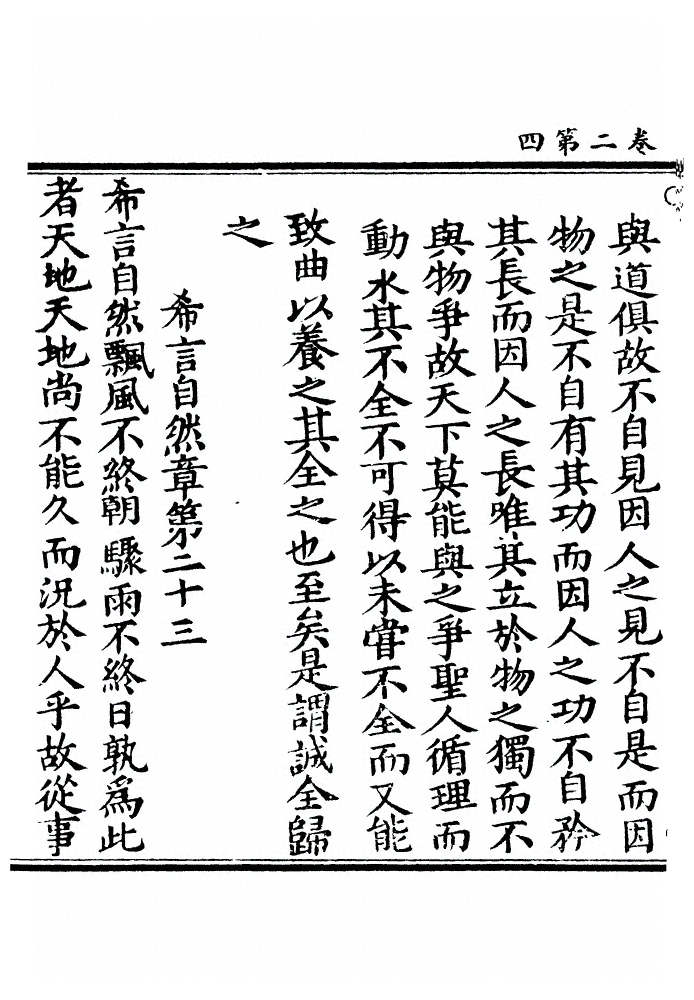 卷二第四
與道俱故不自見因人之見不自是而因
物之是不自有其功而因人之功不自矜
其長而因人之長唯其立於物之獨而不
與物爭故天下莫能與之爭聖人循理而
動水其不全不可得以未嘗不全而又能
致曲以養之其全之也至矣是謂誠全歸
之
希言自然章第二十三
希言自然飄風不終朝驟雨不終日孰為此
者天地天地尚不能久而況於人乎故從事